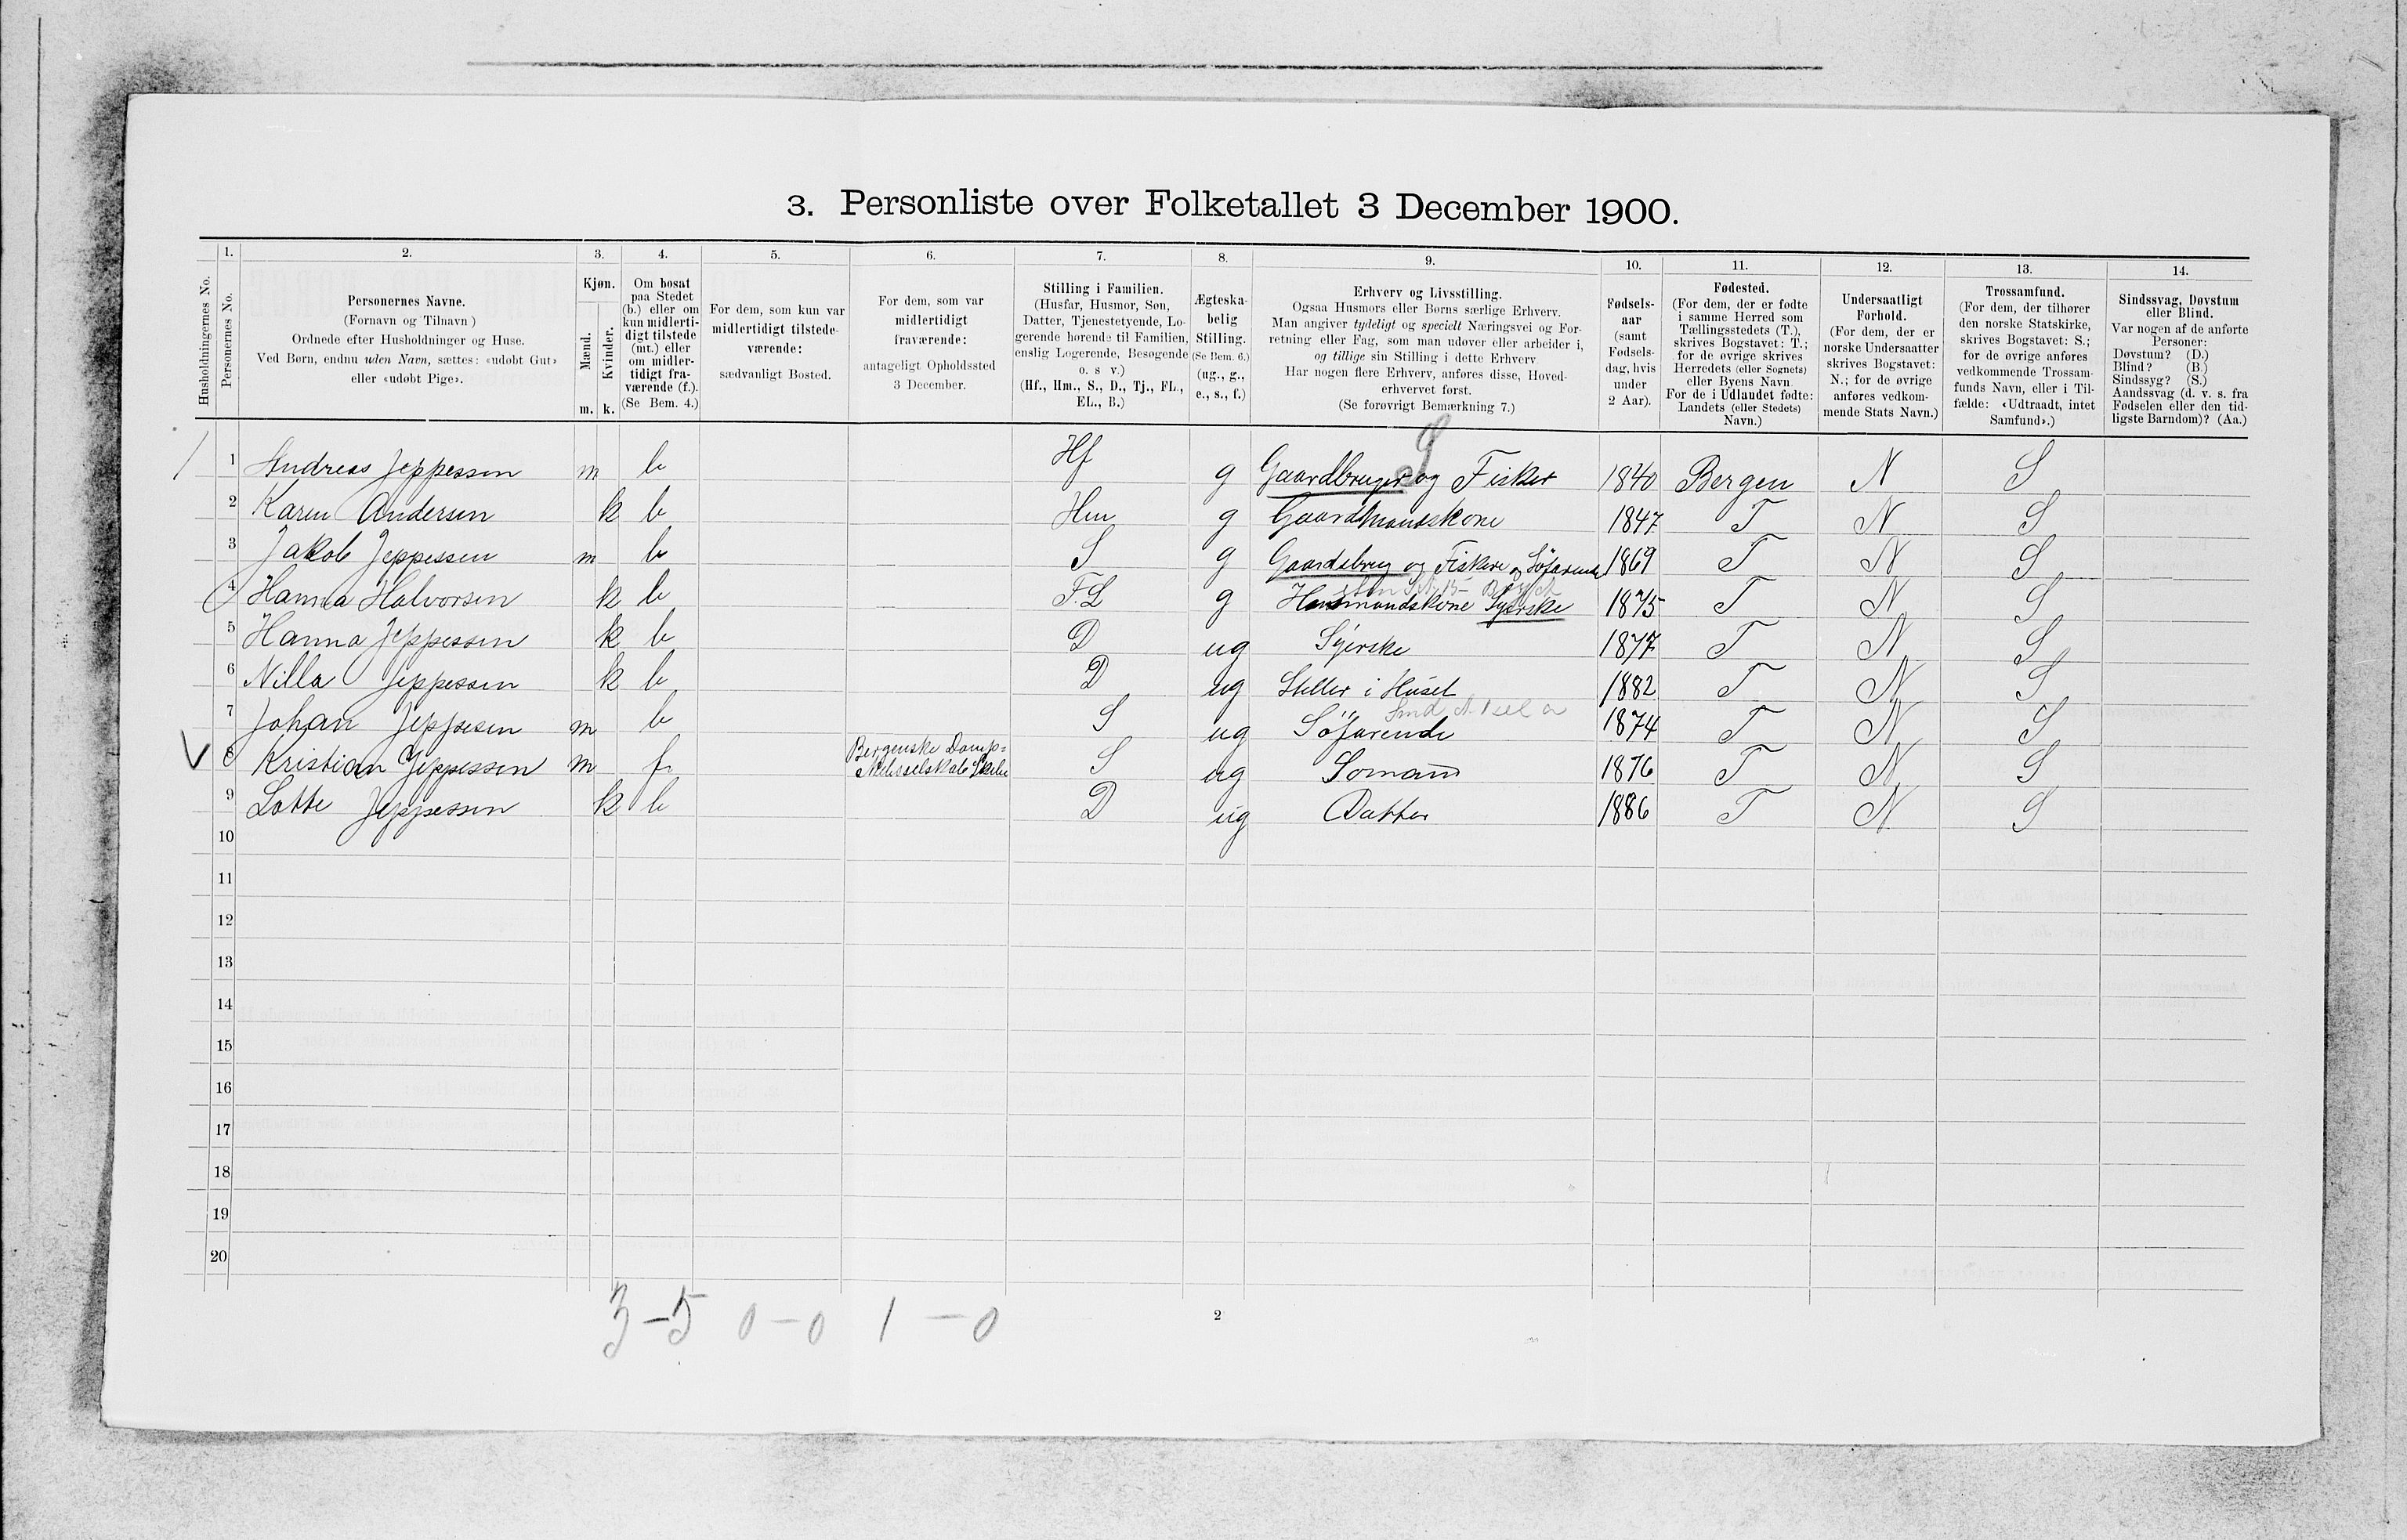 3. Personliste over Folketallet 3 December 1900.
Husholdningernes No.
1.
Personernes No.
2.
Personernes Navne.
(Fornavn og Tilnavn)
Ordnede efter Husholdninger og Huse.
Ved Børn, endnu uden Navn, sættes: «udøbt Gut»
eller «udøbt Pige».
3.
Kjøn.
Mænd.
Kvinder.
m. k.
4.
Om bosat
paa Stedet
(b.) eller om
kun midlerti-
digt tilstede
(mt.) eller
om midler-
tidigt fra-
værende (f.).
(Se Bem. 4.)
5.
For dem, som kun var
midlertidigt tilstede-
værende:
sædvanligt Bosted.
6.
For dem, som var
midlertidigt
fraværende:
antageligt Opholdssted
3 December.
7.
Stilling i Familien.
(Husfar, Husmor, Søn,
Datter, Tjenestetyende, Lo-
gerende hørende til Familien,
enslig Logerende, Besøgende
o. s v.)
(Hf., Hm., S., D., Tj., FL.,
EL., B.)
8.
Ægteska-
belig
Stilling.
(Se Bem. 6.)
(ug., g.,
e., s., f.)
9.
Erhverv og Livsstilling.
Ogsaa Husmors eller Børns særlige Erhverv.
Man angiver tydeligt og specielt Næringsvei og For-
retning eller Fag, som man udøver eller arbeider i,
og tillige sin Stilling i dette Erhverv
Har nogen flere Erhverv, anføres disse, Hoved-
erhvervet først.
(Se forøvrigt Bemærkning 7.)
10.
Fødsels-
aar
(samt
Fødsels-
dag, hvis
under
2 Aar).
11.
Fødested.
(For dem, der er fødte
i samme Herred som
Tællingsstedets (T.),
skrives Bogstavet: T.;
for de øvrige skrives
Herredets (eller Sognets)
eller Byens Navn
For de i Udlandet fødte:
Landets (eller Stedets)
Navn.)
12.
Undersaatligt
Forhold.
(For dem, der er
norske Undersaatter
skrives Bogstavet:
N.; for de øvrige
anføres vedkom-
mende Stats Navn.)
13.
Trossamfund.
(For dem, der tilhører
den norske Statskirke,
skrives Bogstavet: S.;
for de øvrige anføres
vedkommende Trossam-
funds Navn, eller i Til-
fælde: «Udtraadt, intet
Samfund».)
14.
Sindssvag, Døvstum
eller Blind.
Var nogen af de anførte
Personer:
Døvstum? (D.)
Blind? (B.)
Sindssyg? (S.)
Aandssvag (d. v. s. fra
Fødselen eller den tid-
ligste Barndom)? (Aa.)
1 Andreas Jeppessen m b Hf g Gaardbruger og Fisker 1840 Bergen N S
2 Karen Andersen k b Hm g Gaardmandskone 1847 T N S
3 Jakob Jeppessen m b S g Gaardsbrug og Fiskere og Söfarende 1869 T N S
4 Hanna Halvorsen k b F.L g Husmandskone Syerske 1875 T N S
5 Hanna Jeppessen k b D ug Syerske 1877 T N S
6 Nilla Jeppessen k b D ug Steller i Huset 1882 T N S
7 Johan Jeppesen m b S ug Söfarende 1874 T N S
V 8 Kristian Jeppessen m f Bergenske Damp= S ug Sømand 1876 T N S
9 Lotte Jeppessen k b D ug Datter 1886 T N S
10
11
12
13
14
15
16
17
18
19
20
3 - 5 0 - 0 1 - 0
2